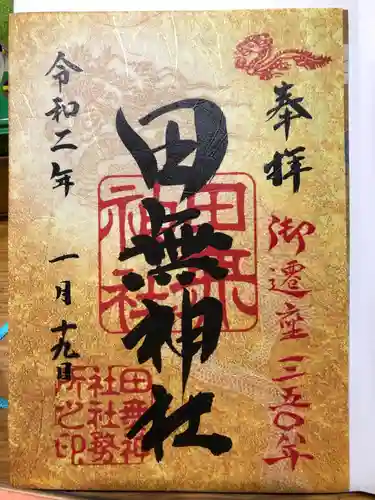 奉拝
御遷座一三五〇年
田無神社
田無神社
令和二年
一月十九日
田無神
社社務
所之印